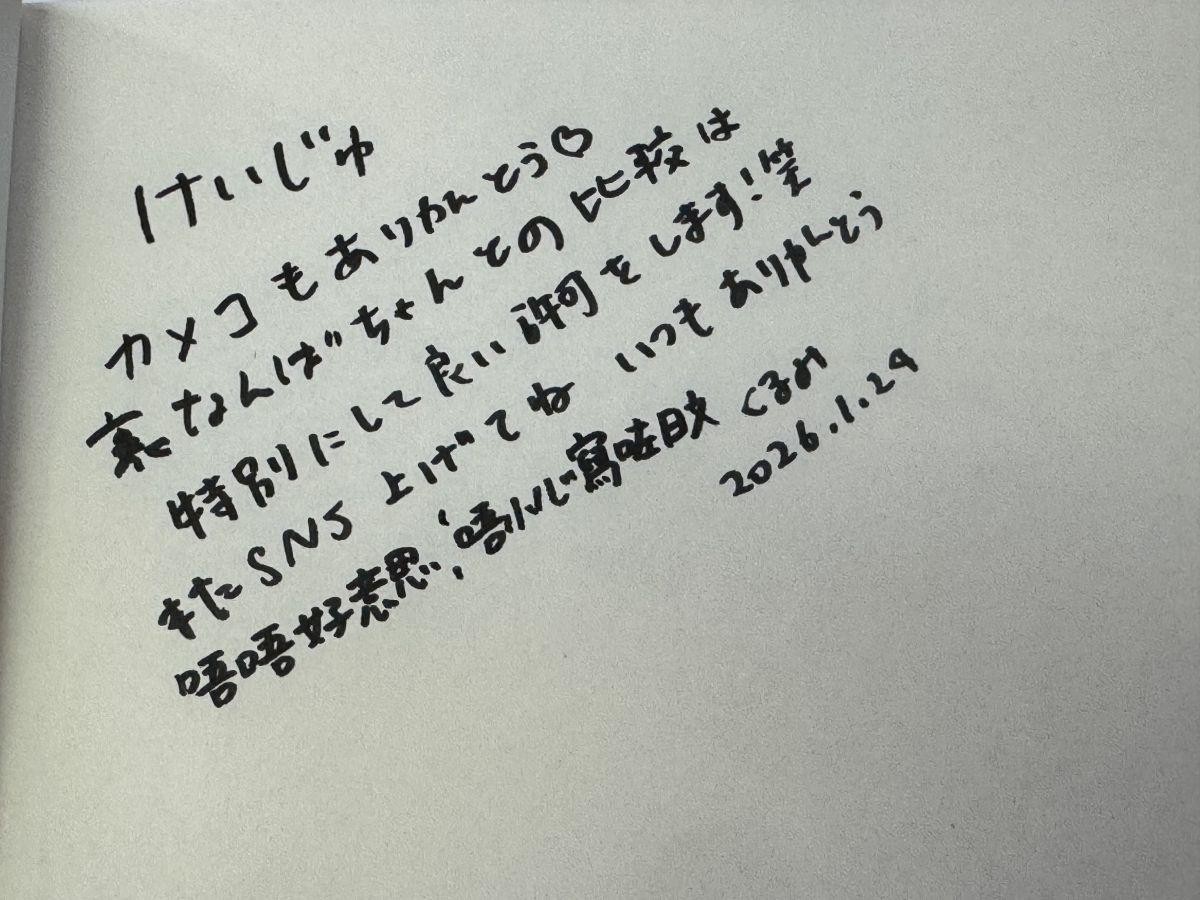 けいじゅ
カメコもありがとう♡
裏なんばちゃんとの比較は
特別にして良い許可をします!笑
またSNS上げてね いつもありがとう
唔唔好意思,唔小心寫咗日文 くるみ
2026.1.24